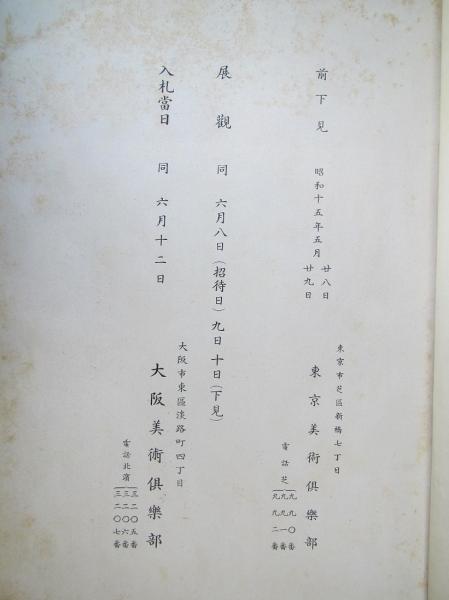 前下見　昭和十五年五月
廿八日
廿九日
東京市芝區新橋七丁目
東京美術倶樂部
電話芝
九九〇番
九九一番
九九二番
展觀　同　六月八日(招待日)九日十日(下見)
入札當日　同　六月十二日
大阪市東區淡路町四丁目
大阪美術倶樂部
電話北濱
三二〇五番
三二〇六番
三二〇七番